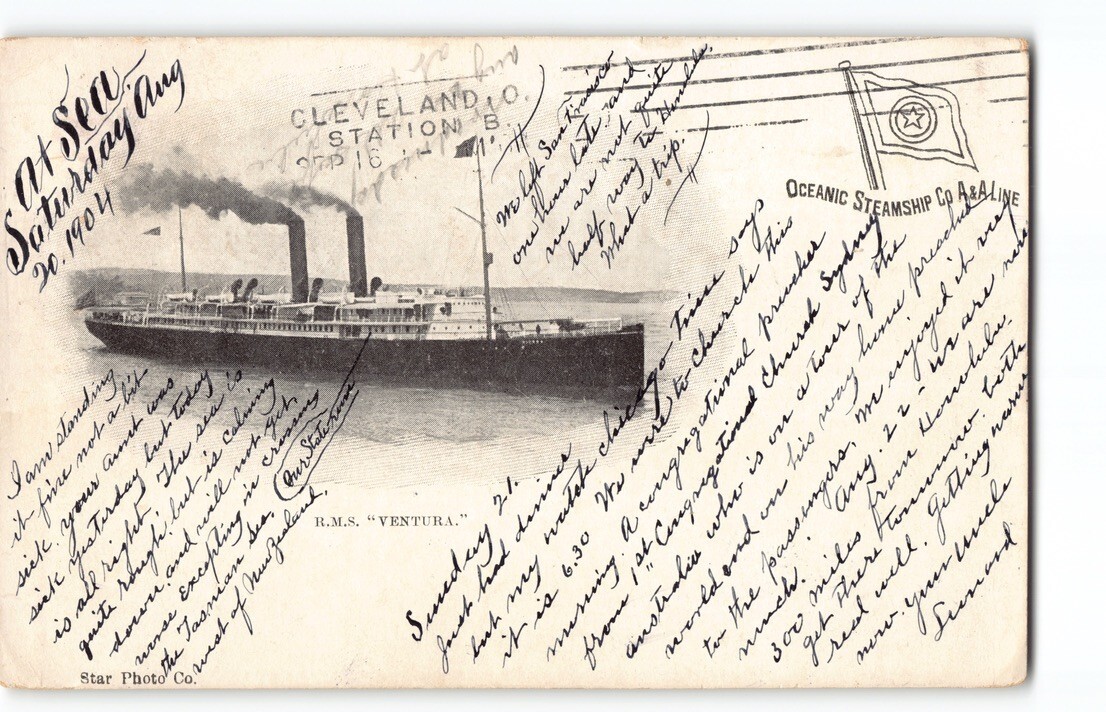 At Sea
Saturday Aug
20. 1904
CLEVELAND, O.
STATION B.
SEP 16
We left San Francisco
one hour late, and
we are not quite
half way to Honolulu.
What a trip.
OCEANIC STEAMSHIP CO A&A LINE
I am standing
it fine not a bit
sick. your aunt was
sick yesterday but today
is all right. The sea is
quite rough, but is calming
down and will not get
worse excepting in crossing
the Tasman Sea,
west of New Zealand.
Our State room
R.M.S. "VENTURA."
Sunday 21.
Just had dinner
but my watch chicago Time says
it is 6.30 We were to Church this
morning, A congregational preacher
from 1st Congregational Church Sydney
Australia who is on a tour of the
world and on his way home preached
to the passengers, we enjoyed it very
much. Aug. 22 - We are now
300 miles from Honolulu,
get there tomorrow. both
real well. Getting warm
now. Your Uncle
Star Photo Co.